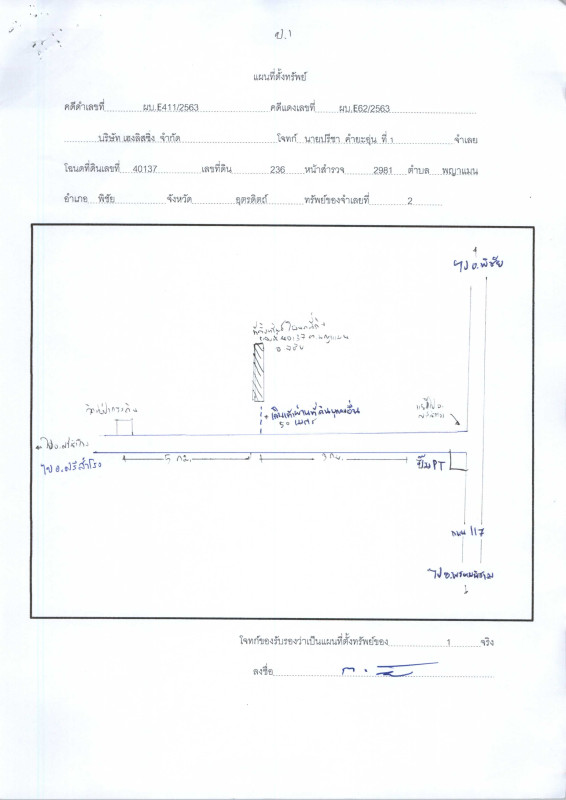 ป.1
แผนที่ตั้งทรัพย์
คดีดำเลขที่ ผบ.E411/2563 คดีแดงเลขที่ ผบ.E62/2563
บริษัท เฮงลิสซิ่ง จำกัด โจทก์ นายปรีชา คำยะอุ่น ที่ 1 จำเลย
โฉนดที่ดินเลขที่ 40137 เลขที่ดิน 236 หน้าสำรวจ 2981 ตำบล พญาแมน
อำเภอ พิชัย จังหวัด อุตรดิตถ์ ทรัพย์ของจำเลยที่ 2
ไป อ.พิชัย
40137 ต.พญาแมน
อ.พิชัย
เดินเท้าผ่านที่ดินบุคคลอื่น
50 เมตร
ไป อ.ศรีสำโรง
5 กม.
3 กม.
ปั๊ม PT
ถนน 117
ไป อ.พรหมพิราม
โจทก์ขอรับรองว่าเป็นแผนที่ตั้งทรัพย์ของ 1 จริง
ลงชื่อ